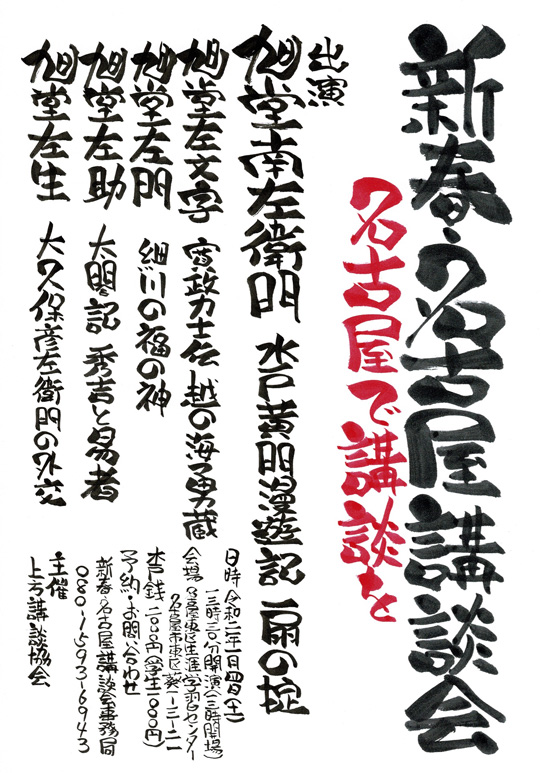 新春・名古屋講談会
名古屋で講談を
出演
旭堂南左衛門 水戸黄門漫遊記 扇の掟
旭堂左文字 寛政力士伝 越の海勇蔵
旭堂左門 細川の福の神
旭堂左助 太閤記 秀吉と易者
旭堂左生 大久保彦左衛門の外交
日時 令和二年一月四日(土)
一三時三〇分開演(一三時開場)
会場 名古屋東区生涯学習センター
名古屋市東区葵一-三-二一
木戸銭 二〇〇〇円(学生一〇〇〇円)
予約・お問い合わせ
新春・名古屋講談会事務局
080-1593-6943
主催
上方講談協会